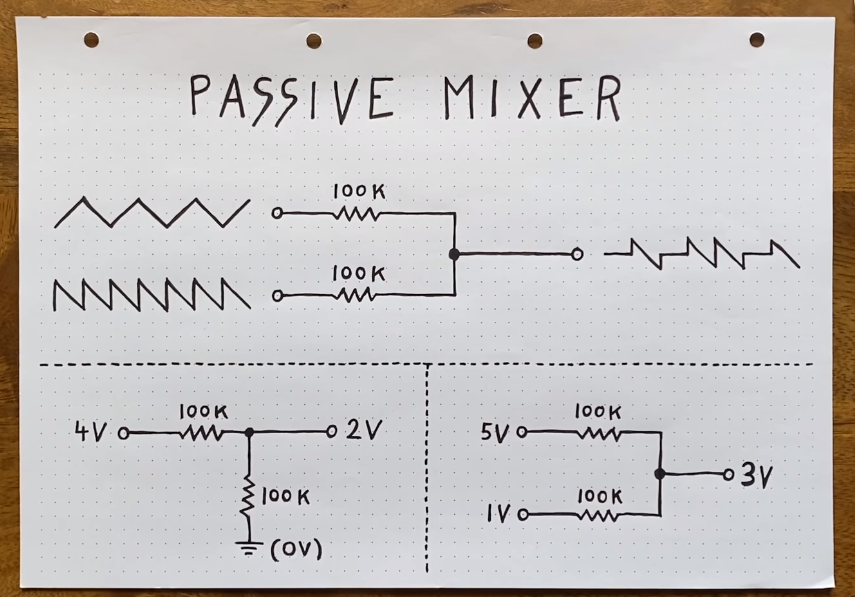 PASSIVE MIXER
100K
100K
4V
100K
2V
100K
(0V)
5V
100K
3V
1V
100K